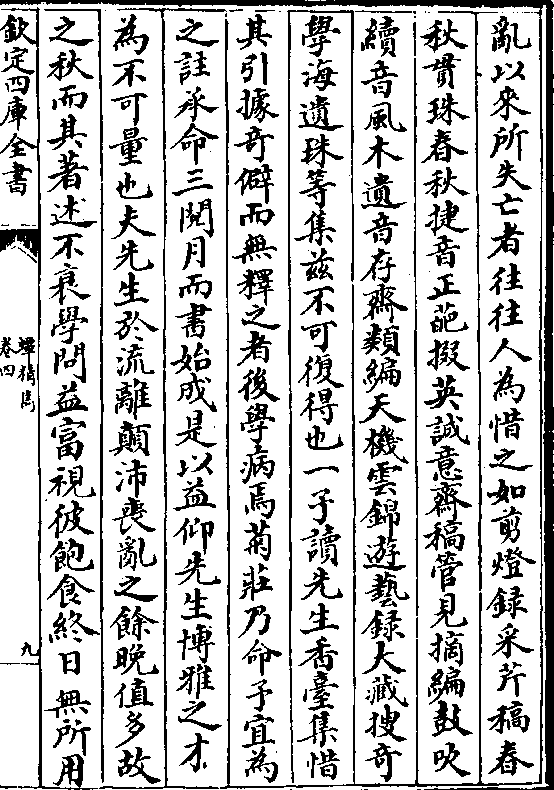 亂以來所失亡者往往人為惜之如剪燈録采芹稿春
秋貫珠春秋捷音正葩掇英誠意齋稿管見摘編鼓吹
續音風木遺音存齋類編天機雲錦遊藝録大藏搜奇
學海遺珠等集兹不可復得也一子讀先生香臺集惜
其引據奇僻而無釋之者後學病焉菊莊乃命予宜為
之註承命三閱月而書始成是以益仰先生博雅之才
為不可量也夫先生於流離顛沛喪亂之餘晚值多故
之秋而其著述不衰學問益富視彼飽食終日無所用
欽定四庫全書
卷四
九